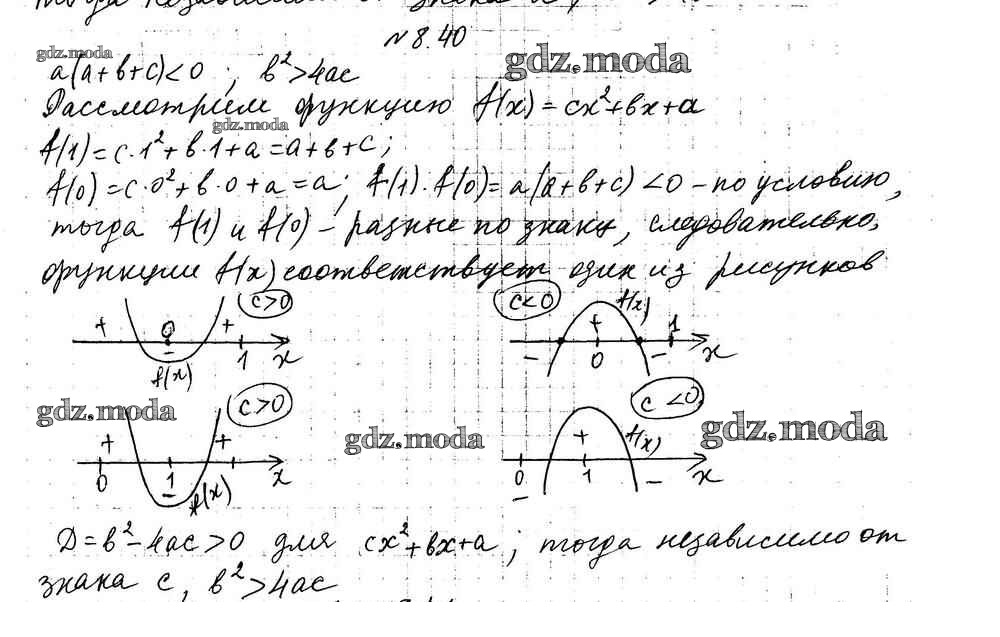 № 8.40
gdz.moda
gdz.moda
a(a+b+c)<0 ; b²>4ac
Рассмотрим функцию f(x) = cx²+bx+a
gdz.moda
f(1)=c·1²+b·1+a=a+b+c;
f(0)=c·0²+b·0+a=a; f(1)·f(0)=a(a+b+c)<0 – по условию,
тогда f(1) и f(0) – разные по знаку, следовательно,
функции f(x) соответствует один из рисунков
c>0
+ 0 +
– 1 x
f(x)
c<0 f(x)
+ 1
– 0 – x
gdz.moda
c>0
+ +
0 1 x
– f(x)
gdz.moda
c<0
gdz.moda
+ f(x)
0 1 x
– –
D=b²–4ac>0 для cx²+bx+a ; тогда независимо от
знака c, b²>4ac